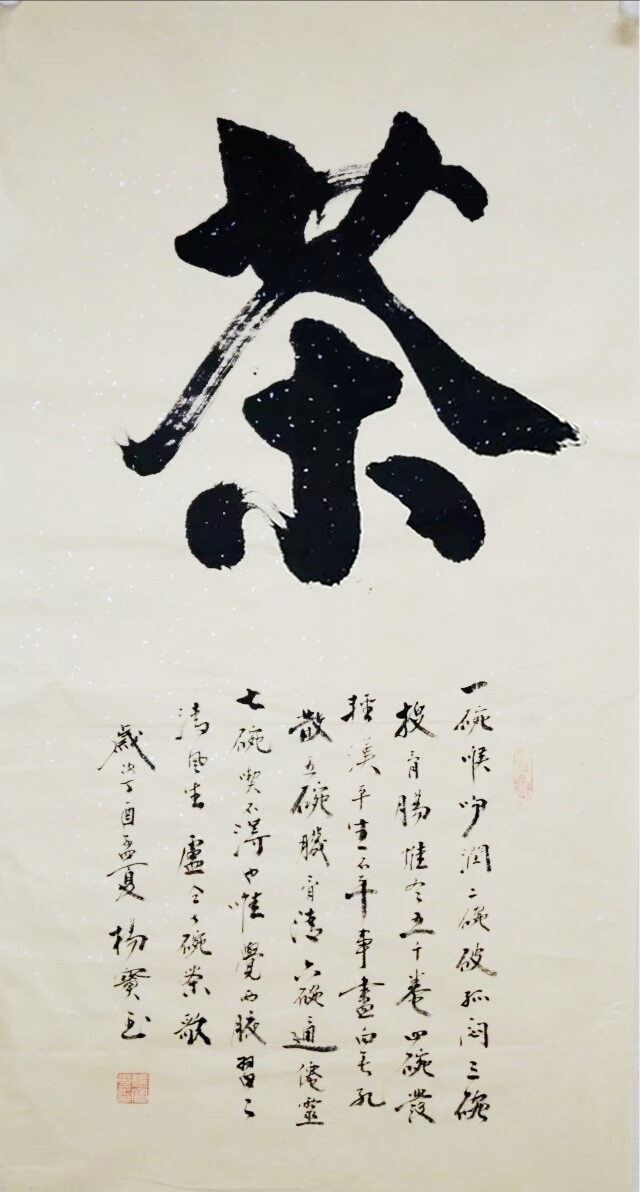 茶
一碗喉吻潤二碗破孤悶三碗
搜腸惟五千卷四碗發
輕平生不平事盡向毛孔
散五碗肌骨清六碗通僊靈
七碗喫不得也唯覺兩腋習々
清風生 盧仝七碗茶歌
歲次丁酉孟夏 楊寶玉